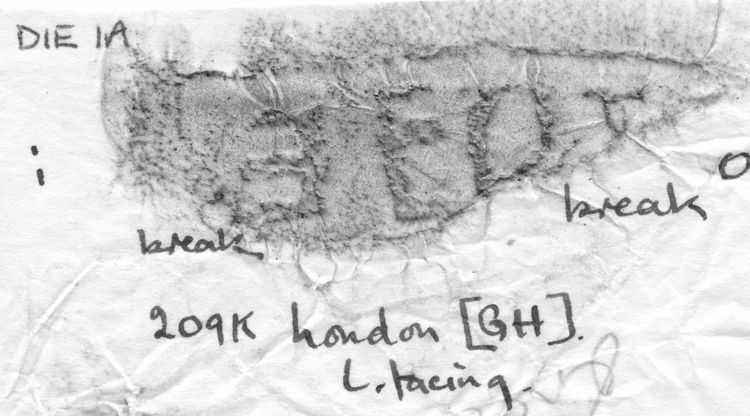 DIE IA
i
O
break
break
209K London [GH].
L. facing.